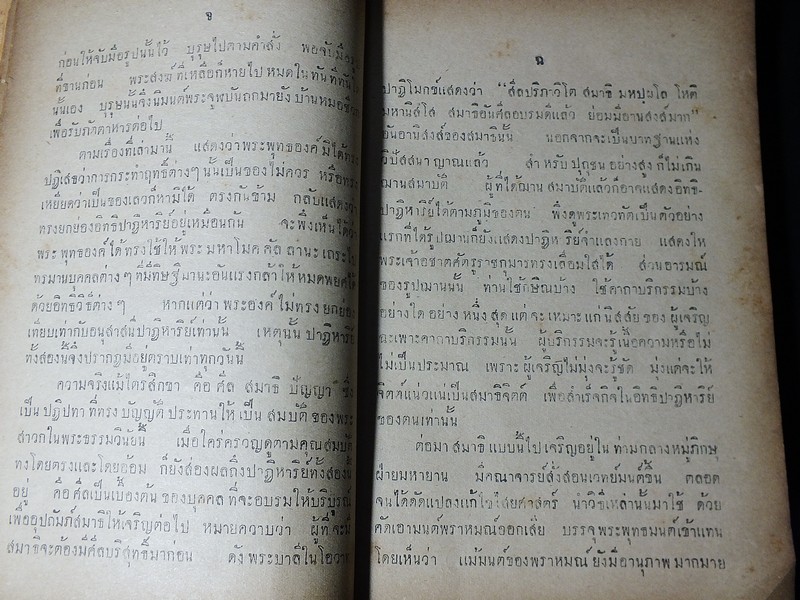 จ
ก่อนให้จับมือรูปนั้นไว้ บุรุษไปตามคำสั่ง พอจับมือ
ที่ขานก่อน พระสงฆ์ที่เหลือก็หายไปหมดในทันที
นั้นเอง บุรุษนั้นจึงนิมนต์พระจูฬบันถกมายังบ้านหมอ
เพื่อรับภัตตาหารต่อไป
ตามเรื่องที่เล่ามานี้ แสดงว่าพระพุทธองค์มิได้
ปฏิเสธว่าการกระทำฤทธิ์ต่างๆ นั้นเป็นของไม่ควร หรือ
เหยียดว่าเป็นของเลวก็หามิได้ ตรงกันข้าม กลับแสดง
ตรงยกย่องอิทธิปาฏิหาริย์อยู่เหมือนกัน จะพึงเห็นได้
พระพุทธองค์ได้ทรงใช้ให้พระมหาโมคคัลลานะเถระไป
ทรมานบุคคลต่างๆ ที่มีทิษฐิมานะอันแรงกล้าให้หมดพยศได้
ด้วยอิทธิวิธีต่างๆ หากแต่ว่าพระองค์ไม่ทรงยกย่อง
เทียบเท่ากับอนุสาสนีปาฏิหาริย์เท่านั้น เหตุนั้นปาฏิหาริย์
ทั้งสองนี้จึงปรากฏมีอยู่ตราบเท่าทุกวันนี้
ความจริงแม้ไตรสิกขา คือ ศีล สมาธิ ปัญญา ซึ่ง
เป็นปฏิปทาที่ทรงบัญญัติประทานให้เป็นสมบัติของพระ
สาวกในพระธรรมวินัยนี้ เมื่อใคร่ครวญดูตามคุณสมบัติ
ทงโดยตรงและโดยอ้อม ก็ยังส่องผลถึงปาฏิหาริย์ทั้งสองนี้
อยู่ คือศีลเป็นเบื้องต้นของบุคคลที่จะอบรมให้บริบูรณ์
เพื่ออุปถัมภ์สมาธิให้เจริญต่อไป หมายความว่า ผู้ที่จะมี
สมาธิจะต้องมีศีลบริสุทธิ์มาก่อน ดังพระบาลีในโอวาท
ฉ
ปาฏิโมกข์แสดงว่า "สีลปริภาวิโต สมาธิ มหปฺผโล โหติ
มหานิสํโส สมาธิอันศีลอบรมดีแล้ว ย่อมมีอานิสงส์มาก"
อันอานิสงส์ของสมาธินั้น นอกจากจะเป็นบาทฐานแห่ง
วิปัสสนาญาณแล้ว สำหรับปุถุชนอย่างสูงก็ไม่เกิน
ฌานสมาบัติ ผู้ที่ได้ฌานสมาบัติแล้วก็อาจแสดงอิทธิ-
ปาฏิหาริย์ได้ตามภูมิของตน พึงดูพระเทวทัตเป็นตัวอย่าง
แรกที่ได้รูปฌานก็ยังแสดงปาฏิหาริย์จำแลงกาย แสดงให้
พระเจ้าอชาตศัตรูราชกุมารทรงเลื่อมใสได้ ส่วนอารมณ์
ของรูปฌานนั้น ท่านใช้กษิณบ้าง ใช้คาถาบริกรรมบ้าง
อย่างใดอย่างหนึ่ง สุดแต่จะเหมาะแก่นิสสัยของผู้เจริญ
ฉะเพาะคาถาบริกรรมนั้น ผู้บริกรรมจะรู้เนื้อความหรือไม่
ไม่เป็นประมาณ เพราะผู้เจริญไม่มุ่งจะรู้ชัด มุ่งแต่จะให้
จิตต์แน่วแน่เป็นสมาธิจิตต์ เพื่อสำเร็จกิจในอิทธิปาฏิหาริย์
ของตนเท่านั้น
ต่อมาสมาธิแบบนี้ไปเจริญอยู่ในท่ามกลางหมู่ภิกษุ
ฝ่ายมหายาน มีคณาจารย์สั่งสอนเวทย์มนต์ขึ้น ตลอด
จนได้ดัดแปลงแก้ไขไสยศาสตร์ นำวิธีเหล่านั้นมาใช้ ด้วย
คัดเอามนต์พราหมณ์ออกเสีย บรรจุพระพุทธมนต์เข้าแทน
โดยเห็นว่า แม้มนต์ของพราหมณ์ยังมีอานุภาพมากมาย